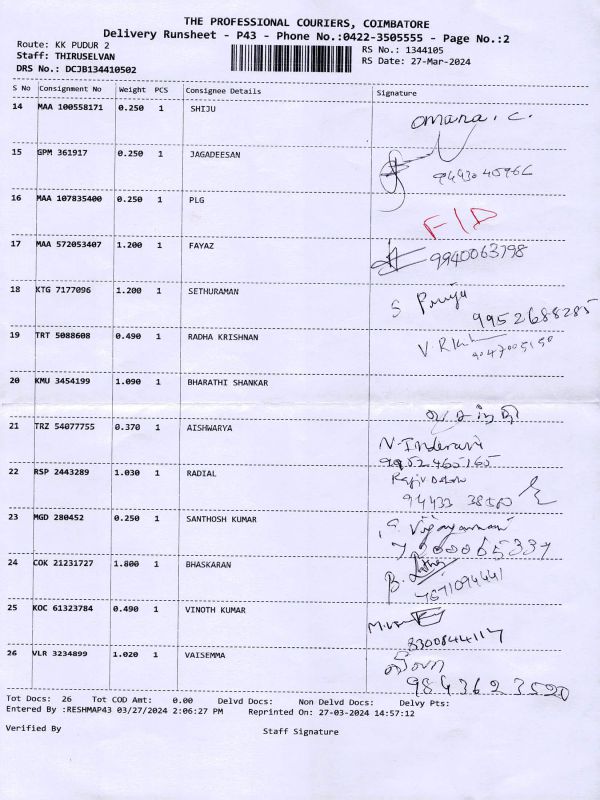 THE PROFESSIONAL COURIERS, COIMBATORE
Delivery Runsheet - P43 - Phone No.:0422-3505555 - Page No.:2
Route: KK PUDUR 2
RS No.: 1344105
Staff: THIRUSELVAN
RS Date: 27-Mar-2024
DRS No.: DCJB134410502
S No Consignment No Weight PCS Consignee Details Signature
14 MAA 100558171 0.250 1 SHIJU omana. c.
15 GPM 361917 0.250 1 JAGADEESAN
16 MAA 107835400 0.250 1 PLG F/D
17 MAA 572053407 1.200 1 FAYAZ 9940063798
18 KTG 7177096 1.200 1 SETHURAMAN S 9952688285
19 TRT 5088608 0.490 1 RADHA KRISHNAN
20 KMU 3454199 1.090 1 BHARATHI SHANKAR
21 TRZ 54077755 0.370 1 AISHWARYA N. Inderani
9952465165
22 RSP 2443289 1.030 1 RADIAL
94433 38580
23 MGD 280452 0.250 1 SANTHOSH KUMAR
24 COK 21231727 1.800 1 BHASKARAN B.
7671094441
25 KOC 61323784 0.490 1 VINOTH KUMAR
8300844117
26 VLR 3234899 1.020 1 VAISEMMA
9843623520
Tot Docs: 26 Tot COD Amt: 0.00 Delvd Docs: Non Delvd Docs: Delvy Pts:
Entered By :RESHMAP43 03/27/2024 2:06:27 PM Reprinted On: 27-03-2024 14:57:12
Verified By Staff Signature